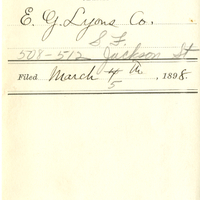 E. G. Lyons Co.
S F.
508-512 Jackson St
Filed March 4th, 1898.
5